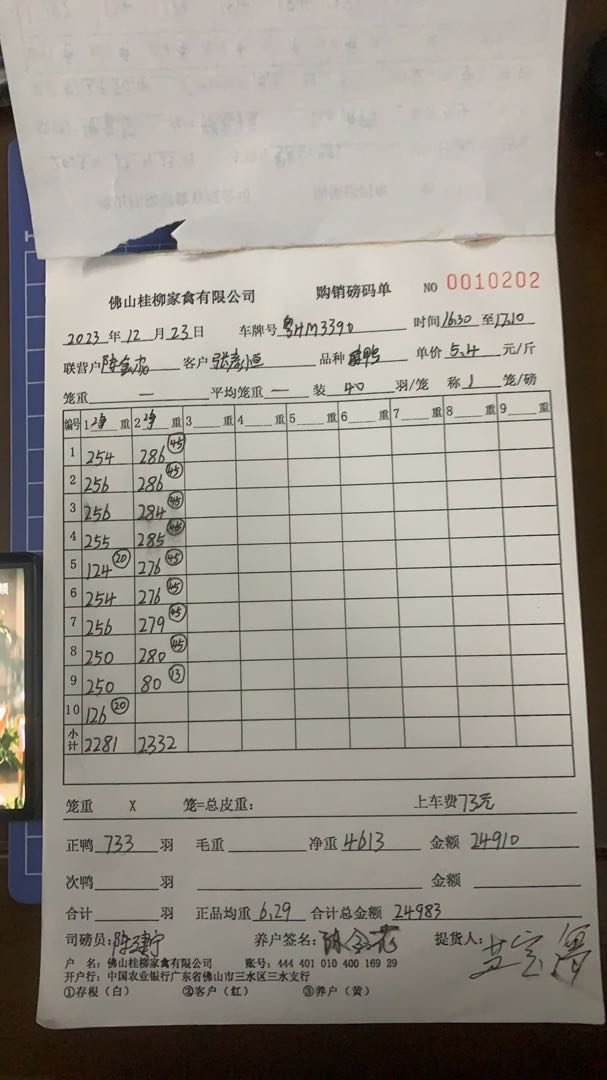 佛山桂柳家禽有限公司 购销磅码单 NO 0010202
2023年12月23日 车牌号 粤HM3390 时间1630至1710
联营户 陈金 客户 张彦恒 品种 鸭 单价5.4元/斤
笼重 — 平均笼重 — 装 40 羽/笼 称 1 笼/磅
编号 1 净 重 2 净 重 3 重 4 重 5 重 6 重 7 重 8 重 9 重
1 254 286 (45)
2 256 286 (45)
3 256 284 (45)
4 255 285
5 124 (20) 276 (45)
6 254 276 (45)
7 256 279 (45)
8 250 280 (45)
9 250 80 (13)
10 126 (20)
小计 2281 2332
笼重 X 笼=总皮重: 上车费73元
正鸭 733 羽 毛重 净重 4613 金额 24910
次鸭 羽 金额
合计 羽 正品均重 6.29 合计总金额 24983
司磅员: 陈建宁 养户签名: 陈金花 提货人:
户 名: 佛山桂柳家禽有限公司 账号: 444 401 010 400 169 29
开户行: 中国农业银行广东省佛山市三水区三水支行
①存根（白） ②客户（红） ③养户（黄）